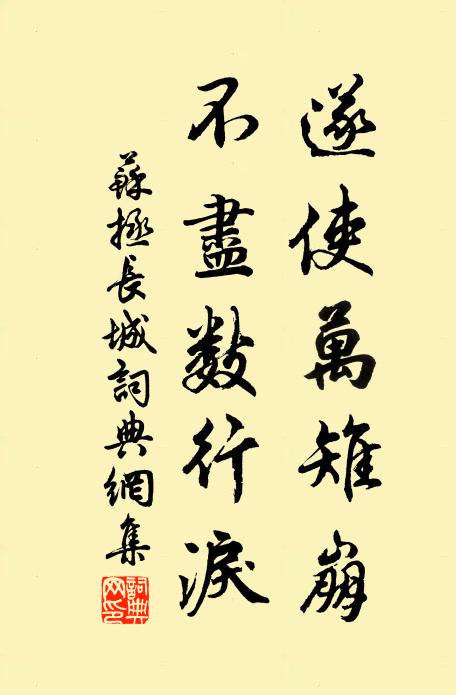 遂使萬雉崩
不盡數行淚
蘇拯長城詞典網集
詞典網印